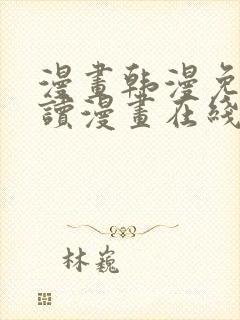 漫畫韩漫免
讀漫畫在綫
林巍